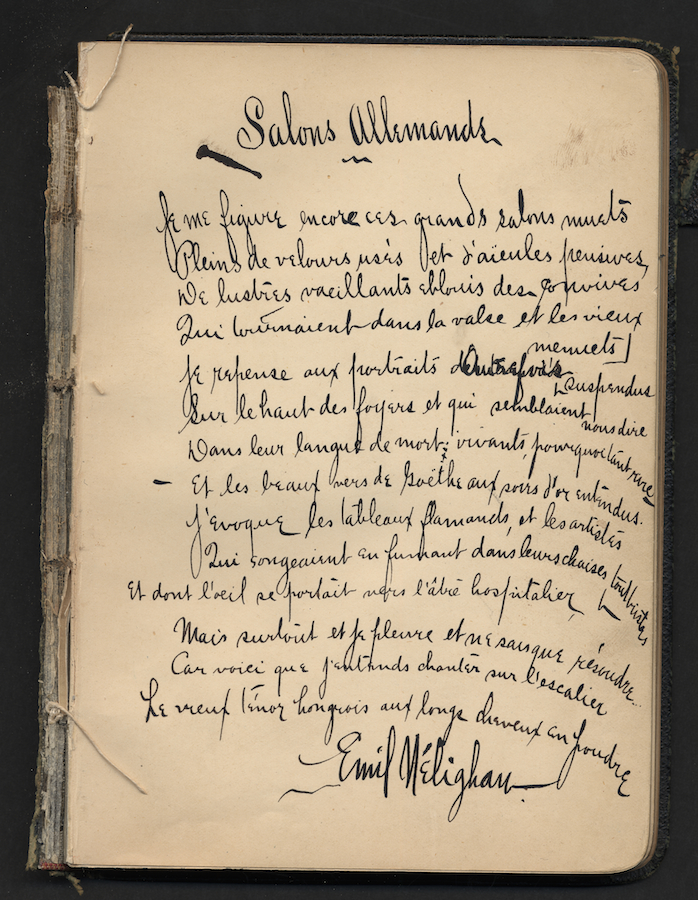 Salons Allemands
Je me figure encore ces grands salons muets
Pleins de velours usés et d'aïeules pensives,
De lustres vacillants eblouis des convives
Qui tournaient dans la valse et les vieux
menuets
Je repense aux portraits d'autrefois
suspendus
Sur le haut des foyers et qui semblaient
nous dire
Dans leur langue de mort : vivants, pourquoi tant rire
Et les beaux vers de Goëthe aux soirs d'or entendus.
J'évoque les tableaux flamands, et les artistes
Qui songeaient en fumant dans leurs chaises
tout tristes
Et dont l'oeil se portait vers l'âtre hospitalier,
Mais surtout et je pleure et ne sais que résoudre..
Car voici que j'entends chanter sur l'escalier
Le vieux ténor hongrois aux longs cheveux en poudre
Emil Nélighan